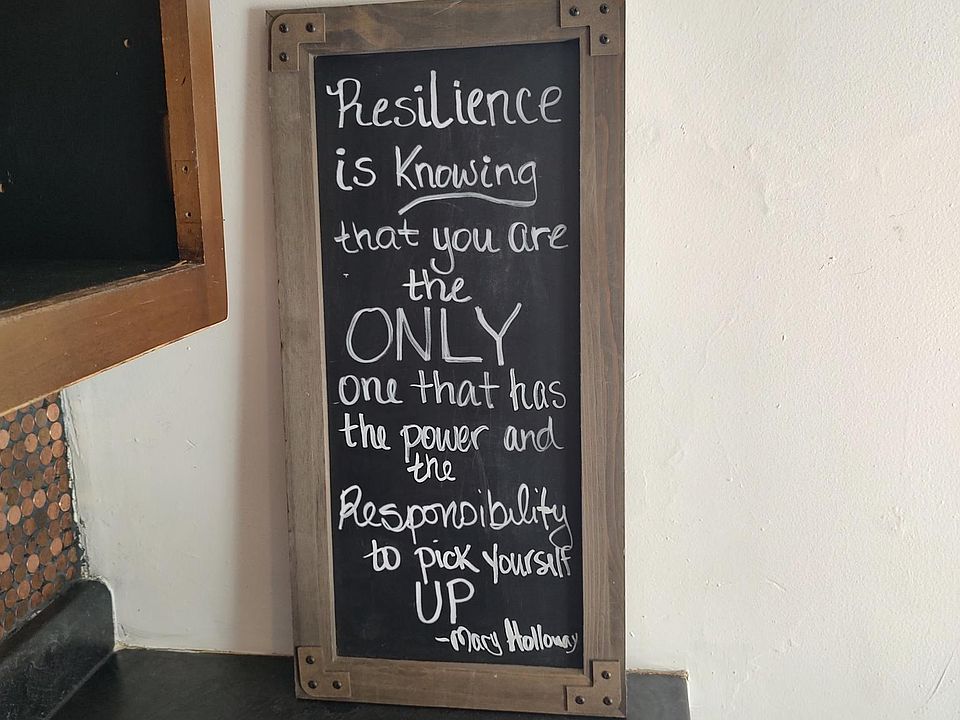 Resilience
is Knowing
that you are
the
ONLY
one that has
the power and
the
Responsibility
to pick yourself
UP
-Mary Holloway